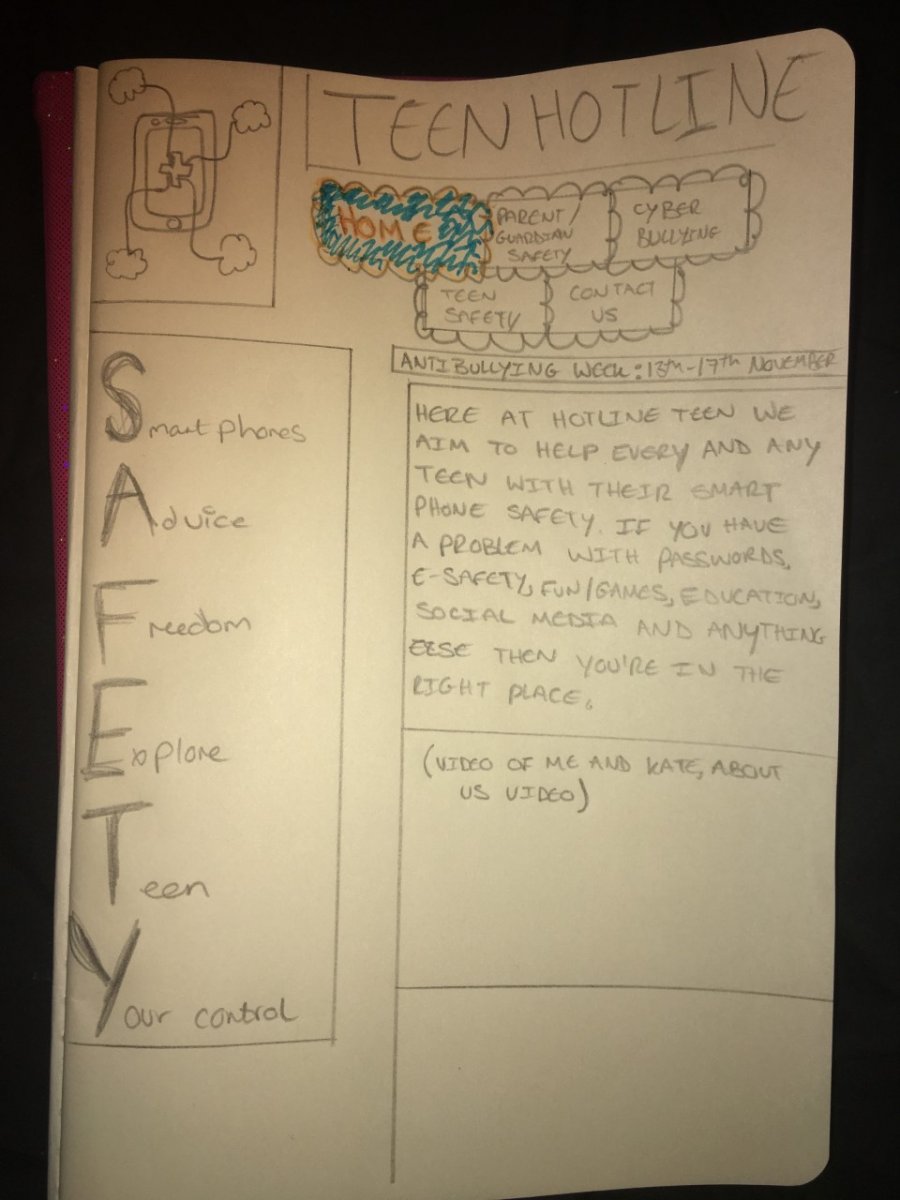 TEEN HOTLINE
HOME
PARENT/
GUARDIAN
SAFETY
CYBER
BULLYING
TEEN
SAFETY
CONTACT
US
ANTIBULLYING WEEK: 13TH-17TH NOVEMBER
Smart phones
Advice
Freedom
Explore
Teen
Your control
HERE AT HOTLINE TEEN WE
AIM TO HELP EVERY AND ANY
TEEN WITH THEIR SMART
PHONE SAFETY. IF YOU HAVE
A PROBLEM WITH PASSWORDS,
E-SAFETY, FUN/GAMES, EDUCATION,
SOCIAL MEDIA AND ANYTHING
ELSE THEN YOU'RE IN THE
RIGHT PLACE.
(VIDEO OF ME AND KATE, ABOUT
US VIDEO)